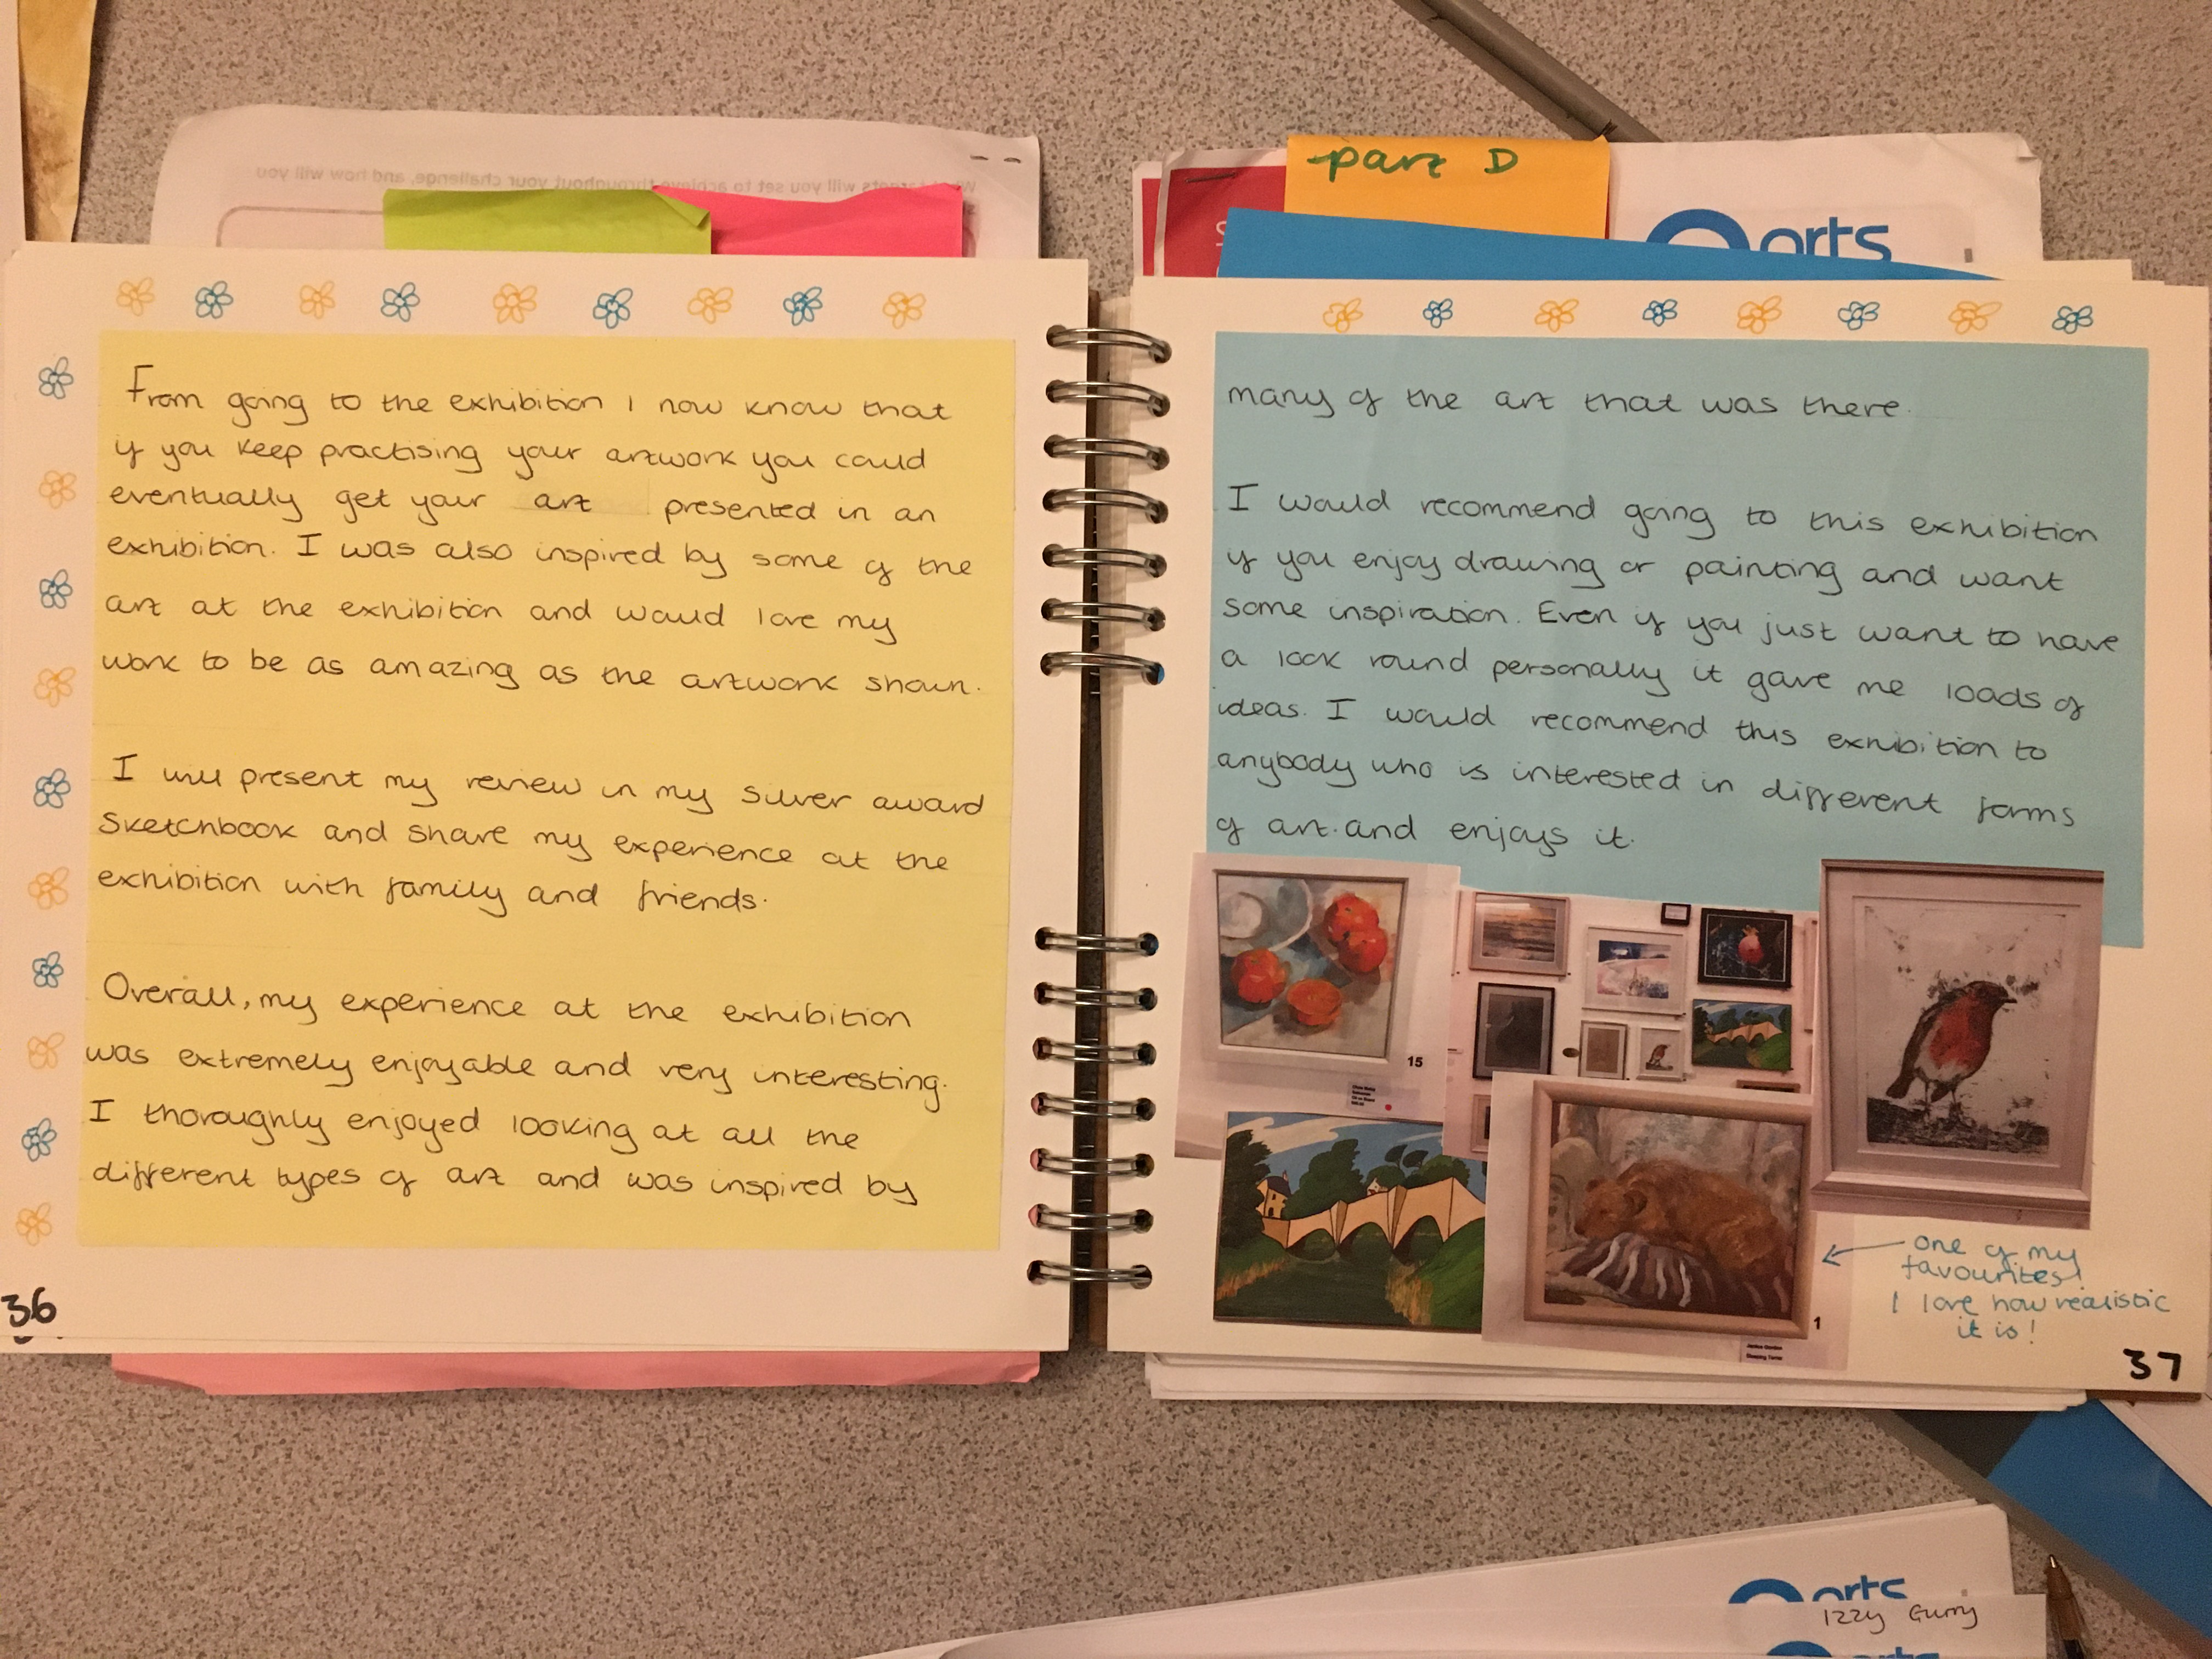 part D
arts
From going to the exhibition I now know that
if you keep practising your artwork you could
eventually get your art presented in an
exhibition. I was also inspired by some of the
art at the exhibition and would love my
work to be as amazing as the artwork shown.
I will present my review in my silver award
sketchbook and share my experience at the
exhibition with family and friends.
Overall, my experience at the exhibition
was extremely enjoyable and very interesting.
I thoroughly enjoyed looking at all the
different types of art and was inspired by
36
many of the art that was there.
I would recommend going to this exhibition
if you enjoy drawing or painting and want
some inspiration. Even if you just want to have
a look round personally it gave me loads of
ideas. I would recommend this exhibition to
anybody who is interested in different forms
of art.and enjoys it.
15
1
one of my
favourites!
I love how realistic
it is!
37
arts
Izzy
arts